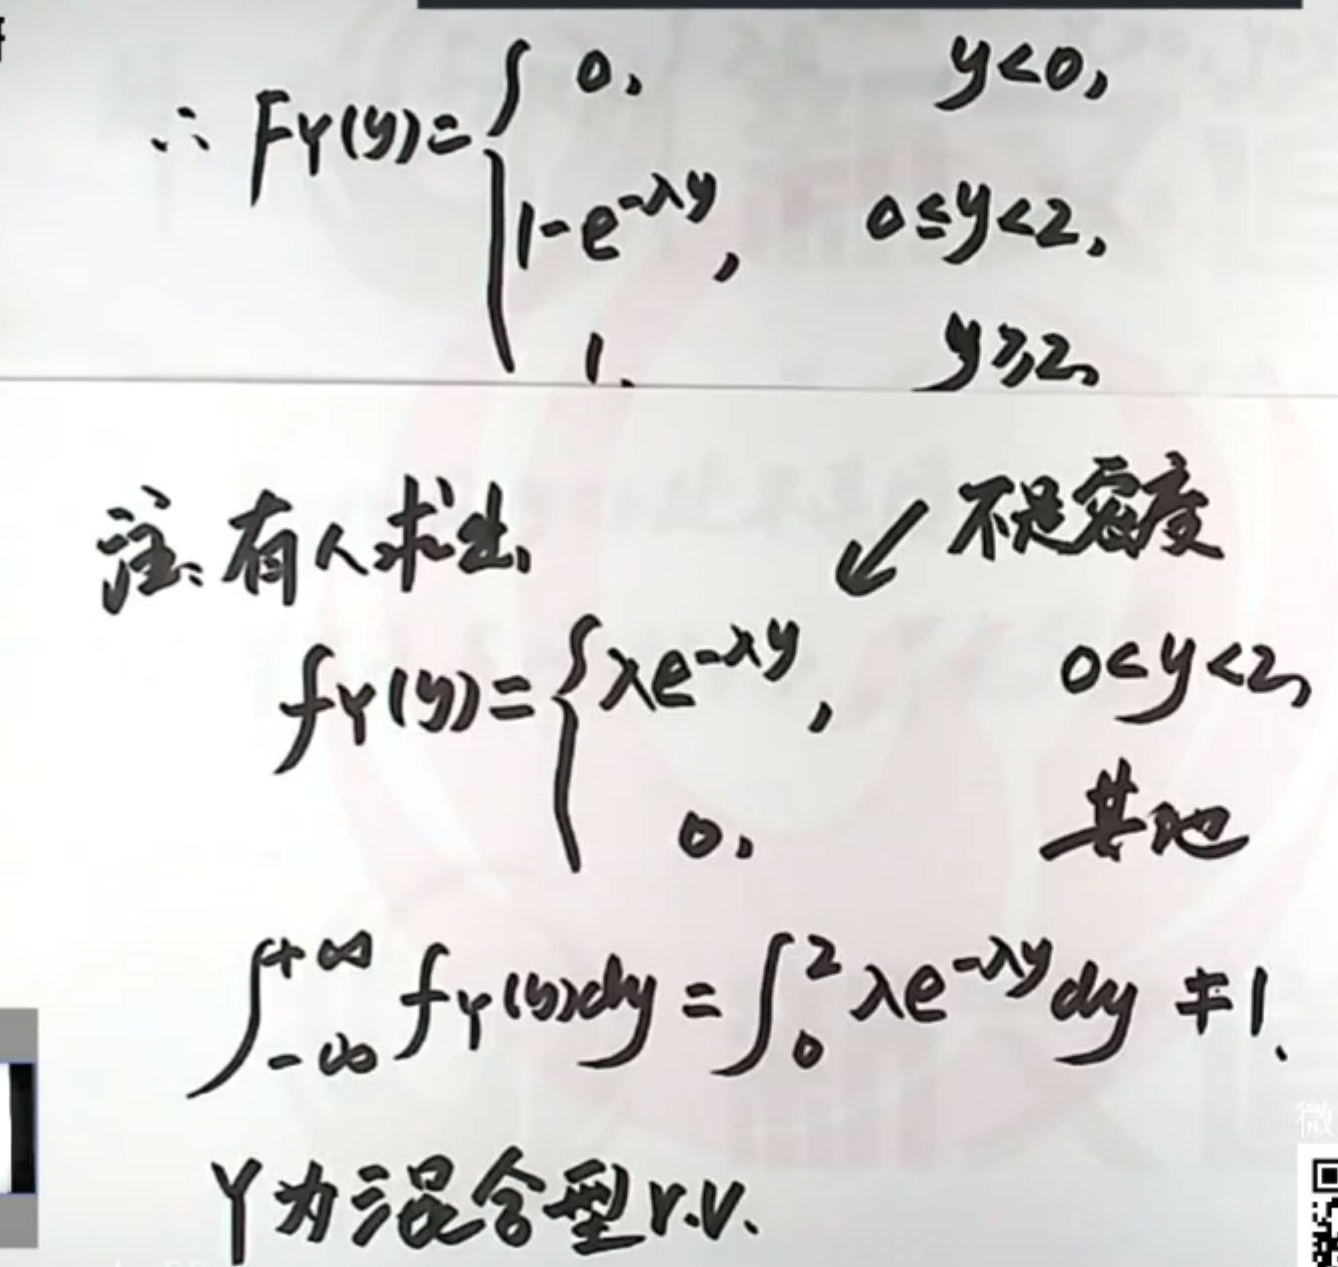 ∴ F_Y(y) = { 0, y<0,
1-e^{-λy}, 0≤y<2,
1. y≥2,
注:有人求出, ↙ 不是密度
f_Y(y) = { λe^{-λy}, 0<y<2,
0, 其他
∫_{-∞}^{+∞} f_Y(y)dy = ∫_0^2 λe^{-λy}dy ≠ 1.
Y为混合型r.v.
微